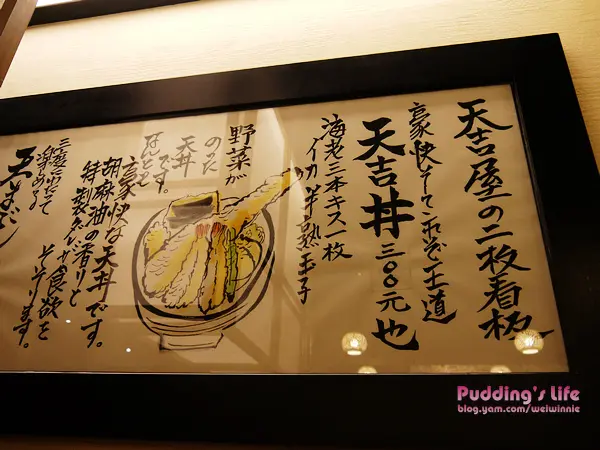 天吉屋の二枚看板
豪快そてこれぞ王道
天吉丼 三〇〇元也
海老三本キス一枚
イカ 半熟玉子
野菜が
のった
天丼
です。
なんとも
豪快な天丼です。
胡麻油の香りと
特製だれが食欲を
そそります。
Pudding's Life
blog.yam.com/weiwinnie